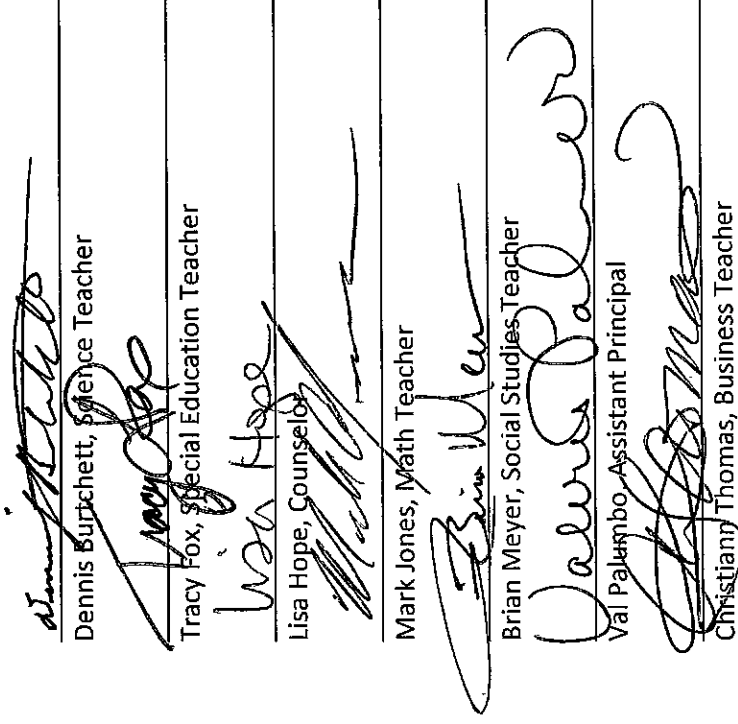 Dennis Burtchett, Science Teacher
Tracy Fox
Tracy Fox, Special Education Teacher
Lisa Hope
Lisa Hope, Counselor
Mark Jones, Math Teacher
Brian Meyer
Brian Meyer, Social Studies Teacher
Valerie Palumbo
Val Palumbo, Assistant Principal
Christiann Thomas, Business Teacher